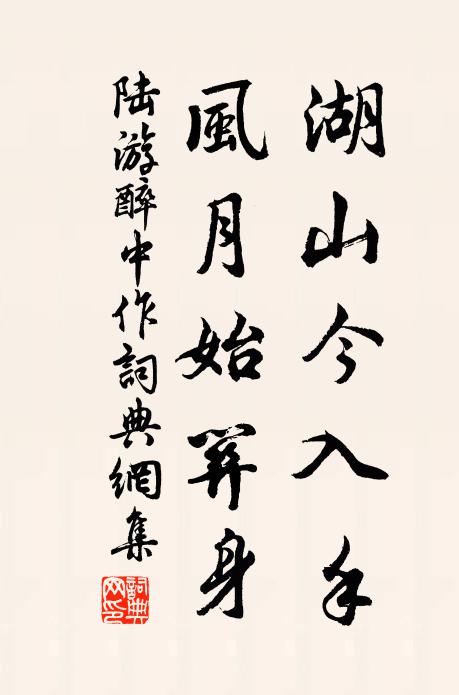 湖山今入手
風月始關身
陸游醉中作詞典網集
詞典
网印